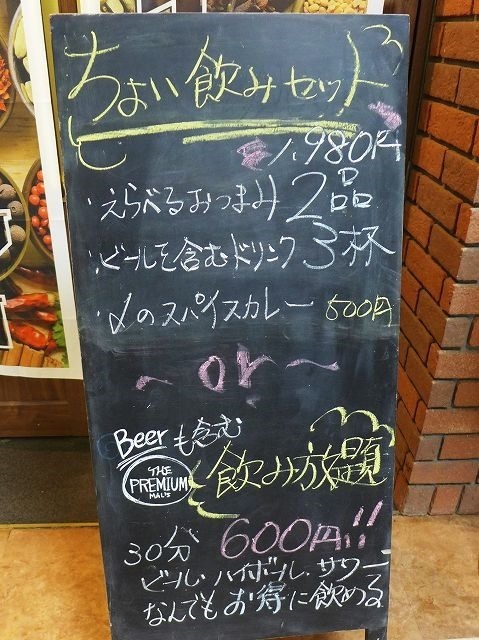 ちょい飲みセット
1,980円
・えらべるおつまみ 2品
・ビールを含むドリンク 3杯
・〆のスパイスカレー 500円
～or～
Beerも含む
THE
PREMIUM
MAL'S
飲み放題
30分 600円!!
ビール・ハイボール・サワー
なんでもお得に飲める